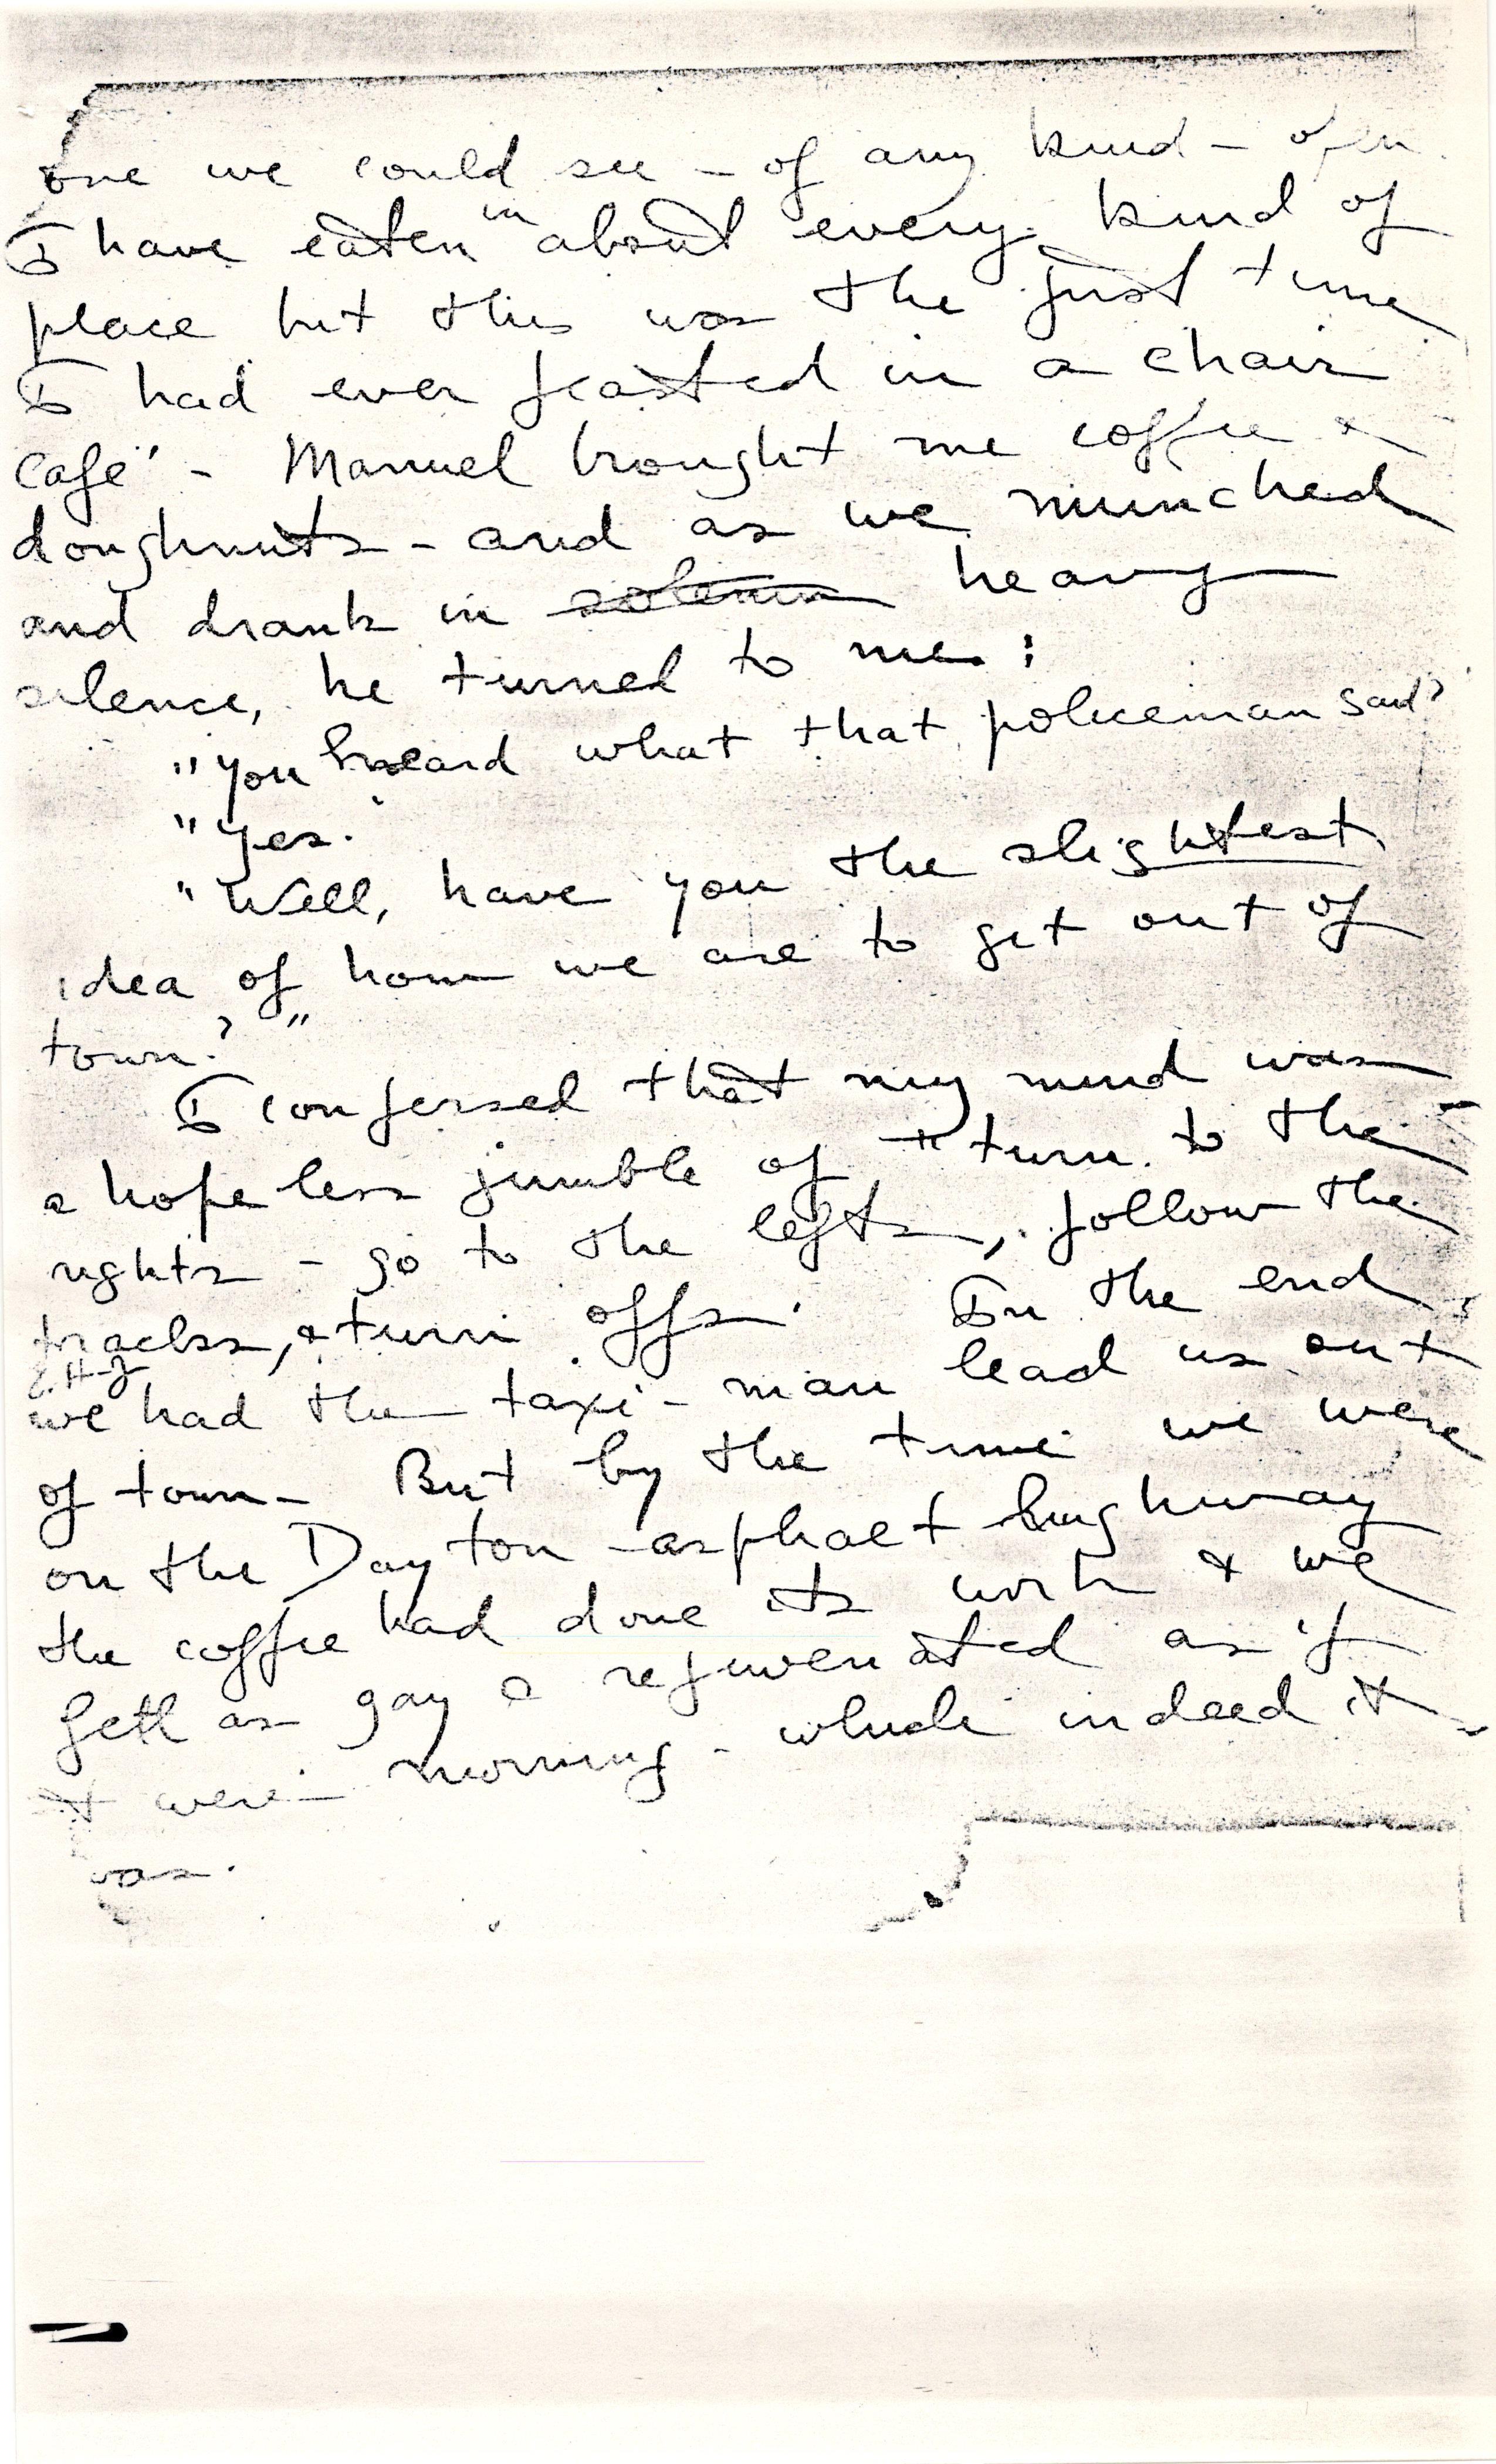 one we could see - of any kind - open.
I have eaten in about every kind of
place but this was the first time
I had ever feasted in a "chair
café" - Manuel brought me coffee &
doughnuts - and as we munched
and drank in solemn heavy
silence, he turned to me:
"You heard what that policeman said?
"Yes.
"Well, have you the slightest
idea of how we are to get out of
town?"
I confessed that my mind was
a hopeless jumble of "turn to the
rights - go to the lefts, follow the
tracks, & turn offs. In the end,
we had the taxi-man lead us out
of town - But by the time we were
on the Dayton asphalt highway
the coffee had done its work & we
felt as gay & rejuvenated as if
it were morning - which indeed it
was.